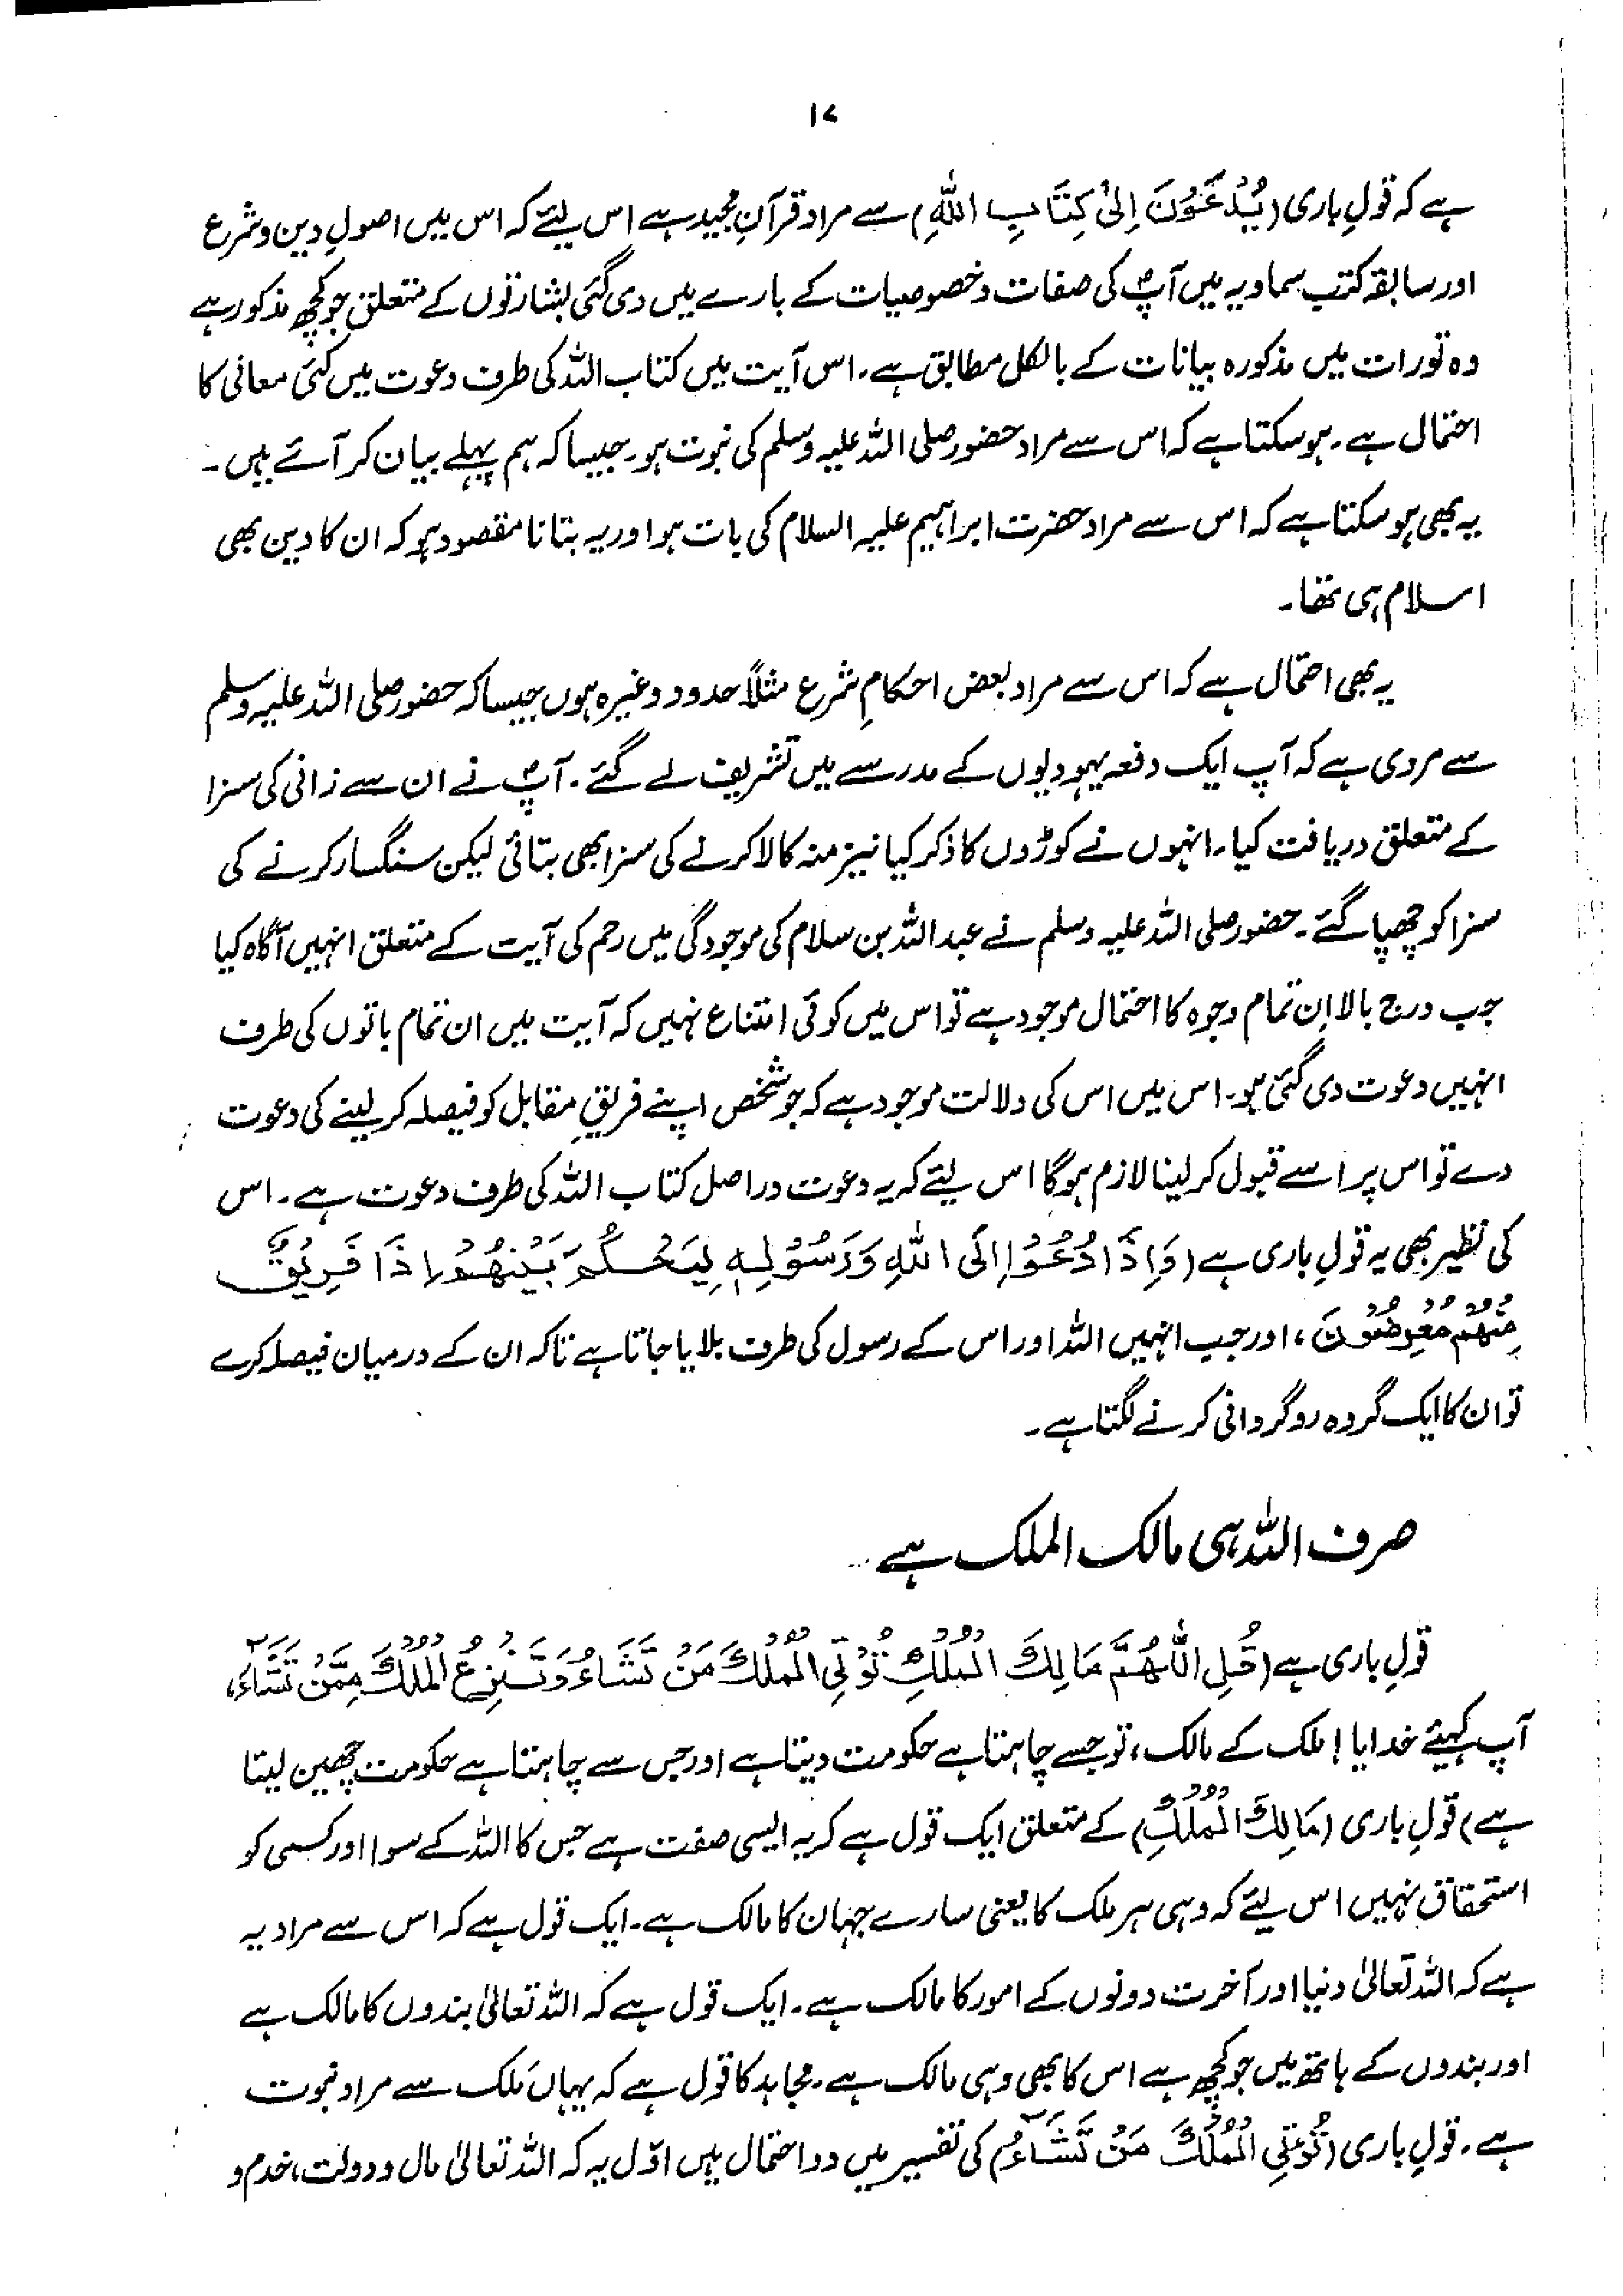 ۱۷
ہے کہ قولِ باری (یُدْعَوْنَ اِلیٰ کِتَابِ اللّٰهِ) سے مراد قرآنِ مجید ہے اس لیئے کہ اس میں اصولِ دین و شرع
اور سابقہ کتب سماویہ میں آپؐ کی صفات و خصوصیات کے بارے میں دی گئی بشارتوں کے متعلق جو کچھ مذکور ہے
وہ تورات میں مذکورہ بیانات کے بالکل مطابق ہے۔ اس آیت میں کتاب اللہ کی طرف دعوت میں کئی معانی کا
احتمال ہے۔ ہو سکتا ہے کہ اس سے مراد حضور صلی اللہ علیہ وسلم کی نبوت ہو۔ جیسا کہ ہم پہلے بیان کر آئے ہیں۔
یہ بھی ہو سکتا ہے کہ اس سے مراد حضرت ابراہیم علیہ السلام کی بات ہو اور یہ بتانا مقصود ہو کہ ان کا دین بھی
اسلام ہی تھا۔
یہ بھی احتمال ہے کہ اس سے مراد بعض احکامِ شرع مثلاً حدود وغیرہ ہوں جیسا کہ حضور صلی اللہ علیہ وسلم
سے مروی ہے کہ آپ ایک دفعہ یہودیوں کے مدرسے میں تشریف لے گئے۔ آپؐ نے ان سے زانی کی سزا
کے متعلق دریافت کیا۔ انہوں نے کوڑوں کا ذکر کیا نیز منہ کالا کرنے کی سزا بھی بتائی لیکن سنگسار کرنے کی
سزا کو چھپا گئے۔ حضور صلی اللہ علیہ وسلم نے عبداللہ بن سلام کی موجودگی میں رجم کی آیت کے متعلق انہیں آگاہ کیا
جب درج بالا اِن تمام وجوہ کا احتمال موجود ہے تو اس میں کوئی امتناع نہیں کہ آیت میں ان تمام باتوں کی طرف
انہیں دعوت دی گئی ہو۔ اس میں اس کی دلالت موجود ہے کہ جو شخص اپنے فریقِ مقابل کو فیصلہ کر لینے کی دعوت
دے تو اس پر اسے قبول کر لینا لازم ہوگا اس لیئے کہ یہ دعوت دراصل کتاب اللہ کی طرف دعوت ہے۔ اس
کی نظیر بھی یہ قولِ باری ہے (وَاِذَا دُعُوْا اِلَی اللّٰهِ وَرَسُوْلِهٖ لِیَحْکُمَ بَیْنَهُمْ اِذَا فَرِیْقٌ
مِّنْهُمْ مُّعْرِضُوْنَ، اور جب انہیں اللہ اور اس کے رسول کی طرف بلایا جاتا ہے تاکہ ان کے درمیان فیصلہ کرے
تو ان کا ایک گروہ روگردانی کرنے لگتا ہے۔
صرف اللہ ہی مالک الملک ہے
قولِ باری ہے (قُلِ اللّٰهُمَّ مَالِكَ الْمُلْكِ تُؤْتِی الْمُلْكَ مَنْ تَشَاءُ وَتَنْزِعُ الْمُلْكَ مِمَّنْ تَشَآءُ،
آپ کہیئے خدایا! ملک کے مالک، تو جسے چاہتا ہے حکومت دیتا ہے اور جس سے چاہتا ہے حکومت چھین لیتا
ہے) قولِ باری (مَالِكَ الْمُلْكِ) کے متعلق ایک قول ہے کہ یہ ایسی صفت ہے جس کا اللہ کے سوا اور کسی کو
استحقاق نہیں اس لیئے کہ وہی ہر ملک کا یعنی سارے جہان کا مالک ہے۔ ایک قول ہے کہ اس سے مراد یہ
ہے کہ اللہ تعالیٰ دنیا اور آخرت دونوں کے امور کا مالک ہے۔ ایک قول ہے کہ اللہ تعالیٰ بندوں کا مالک ہے
اور بندوں کے ہاتھ میں جو کچھ ہے اس کا بھی وہی مالک ہے۔ مجاہد کا قول ہے کہ یہاں مُلک سے مراد نبوت
ہے۔ قولِ باری (تُؤْتِی الْمُلْكَ مَنْ تَشَآءُ) کی تفسیر میں دو احتمال ہیں اوّل یہ کہ اللہ تعالیٰ مال و دولت، خدم و